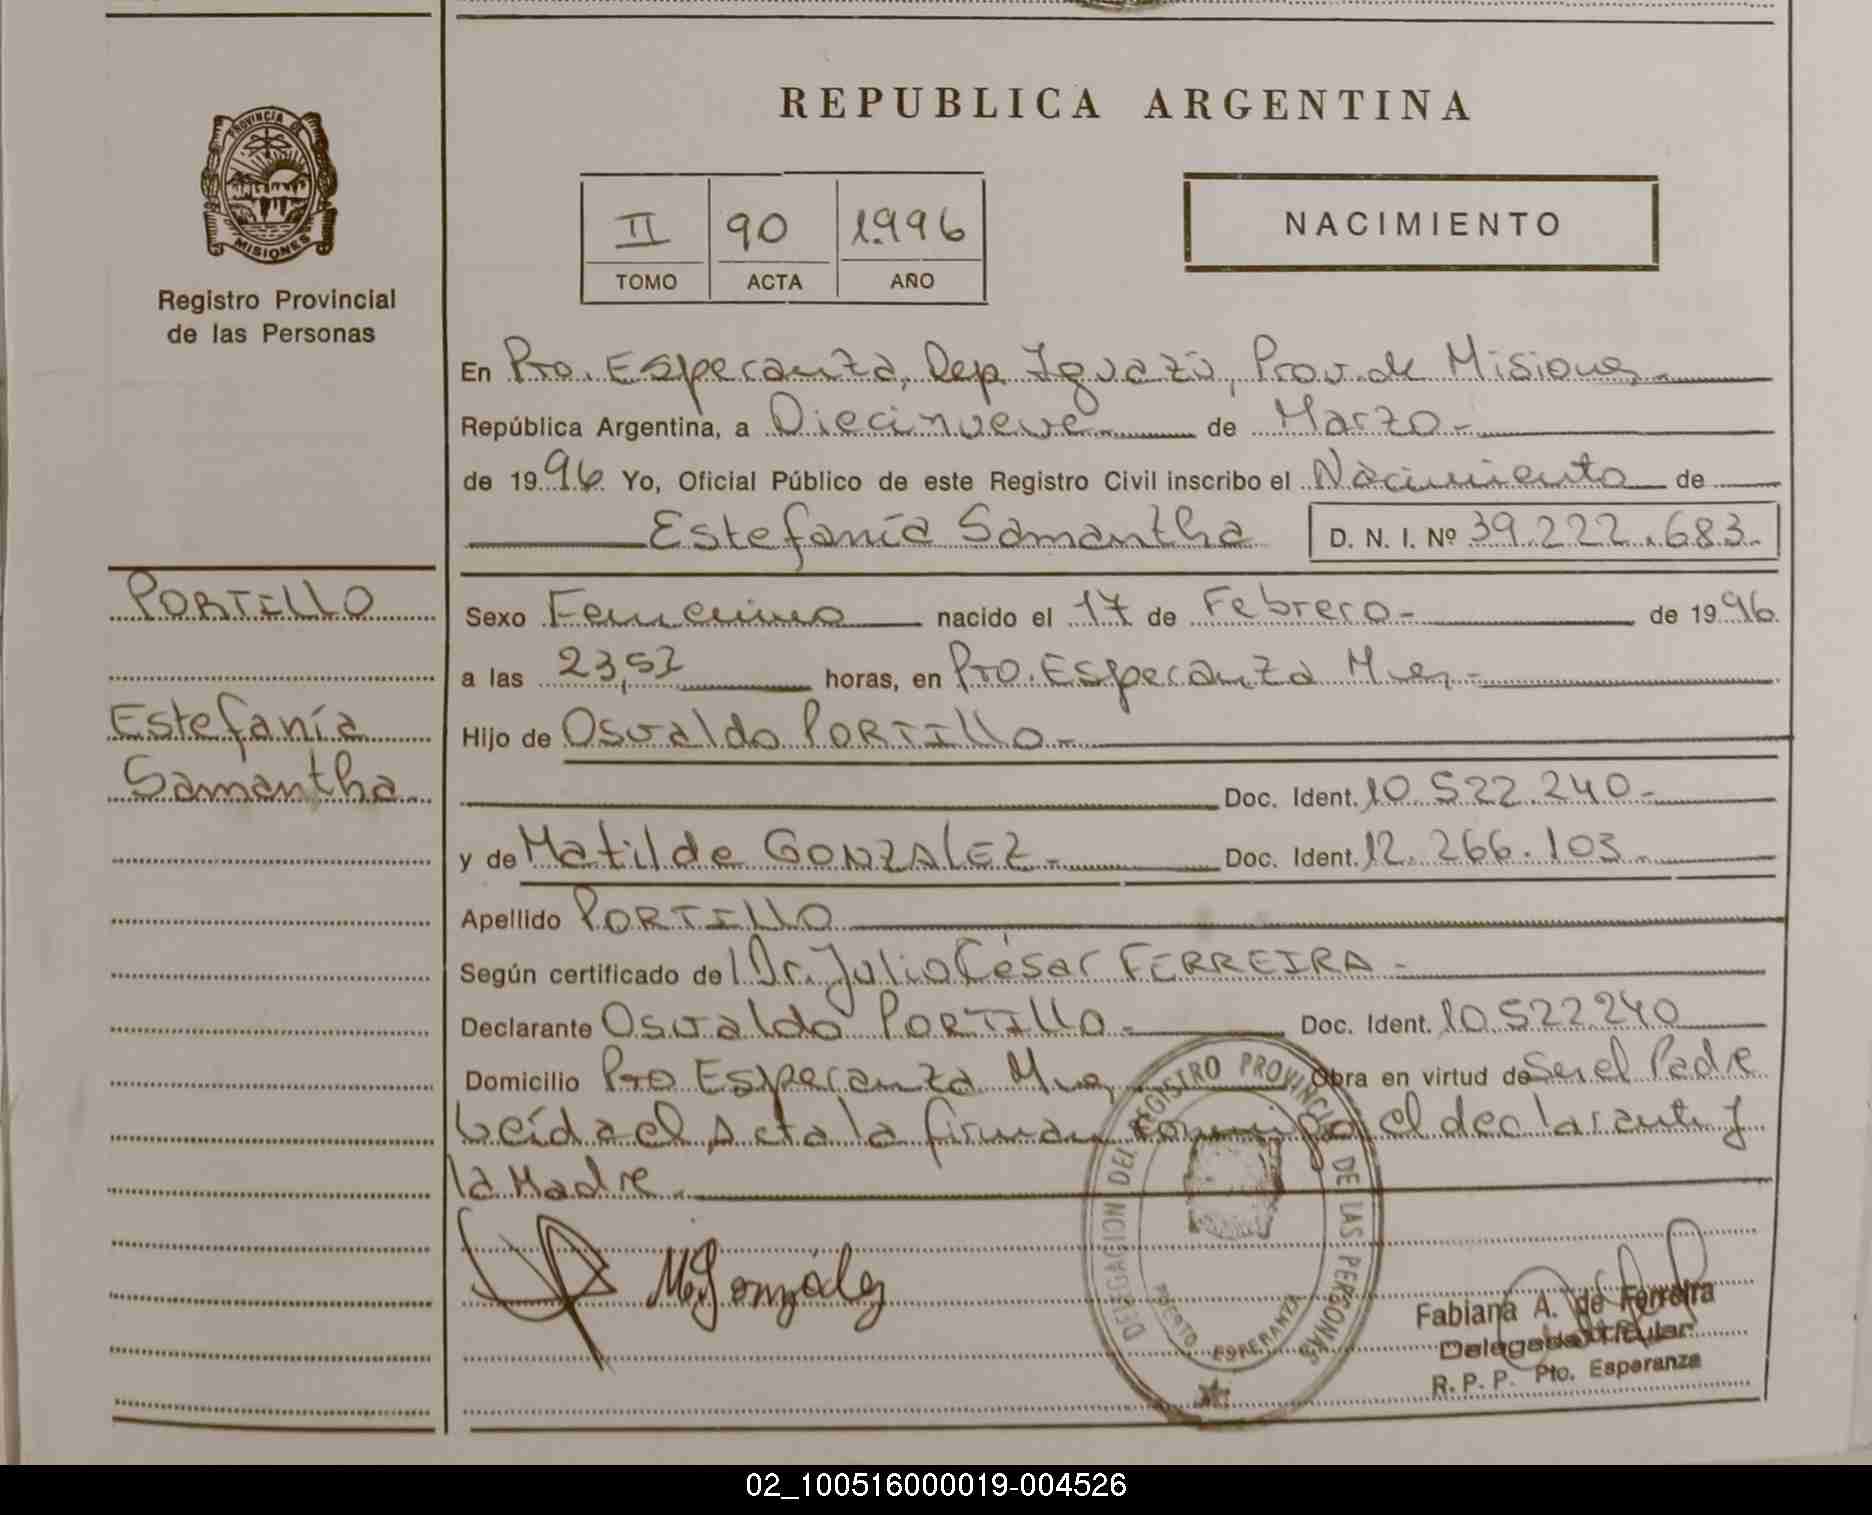 REPUBLICA ARGENTINA
PROVINCIA DE
MISIONES
Registro Provincial
de las Personas
II 90 1.996
TOMO ACTA AÑO
NACIMIENTO
En Pto. Esperanza, Dep. Iguazú, Prov. de Misiones.
República Argentina, a Diecinueve de Marzo.
de 1996 Yo, Oficial Público de este Registro Civil inscribo el Nacimiento de
Estefanía Samantha D. N. I. Nº 39.222.683.
PORTILLO
Estefanía
Samantha
Sexo Femenino nacido el 17 de Febrero de 1996
a las 23,52 horas, en Pto. Esperanza Mnes.
Hijo de Osvaldo PORTILLO.
Doc. Ident. 10.522.240.
y de Matilde GONZALEZ. Doc. Ident. 12.266.103.
Apellido PORTILLO
Según certificado del Dr. Julio César FERREIRA.
Declarante Osvaldo PORTILLO. Doc. Ident. 10.522240
Domicilio Pto Esperanza Mnes Obra en virtud de Ser el Padre
Leída el Acta la firman conmigo el declarante y
la Madre.
M. González
DELEGACION DEL REGISTRO PROVINCIAL DE LAS PERSONAS
PUERTO ESPERANZA
Fabiana A. de Ferreira
Delegada Titular
R. P. P. Pto. Esperanza
02_100516000019-004526